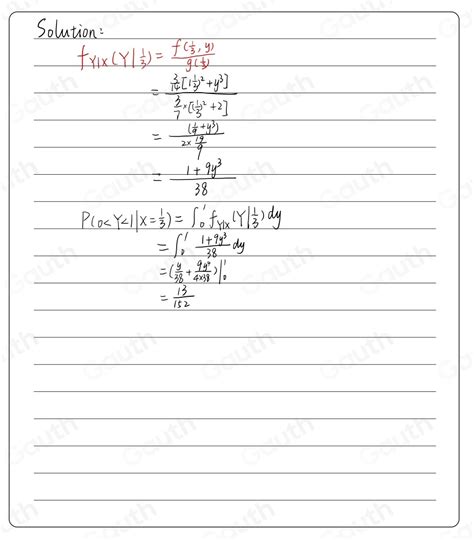 Solution:
f_{Y|X}(Y|\frac{1}{3}) = \frac{f(\frac{1}{3}, y)}{g(\frac{1}{3})}
= \frac{\frac{3}{14}[(\frac{1}{3})^2 + y^3]}{\frac{3}{7} \times [(\frac{1}{3})^2 + 2]}
= \frac{(\frac{1}{9} + y^3)}{2 \times \frac{19}{9}}
= \frac{1 + 9y^3}{38}
P(0<Y<1|X=\frac{1}{3}) = \int_0^1 f_{Y|X}(Y|\frac{1}{3}) dy
= \int_0^1 \frac{1+9y^3}{38} dy
= (\frac{y}{38} + \frac{9y^4}{4 \times 38})|_0^1
= \frac{13}{152}
Gauth